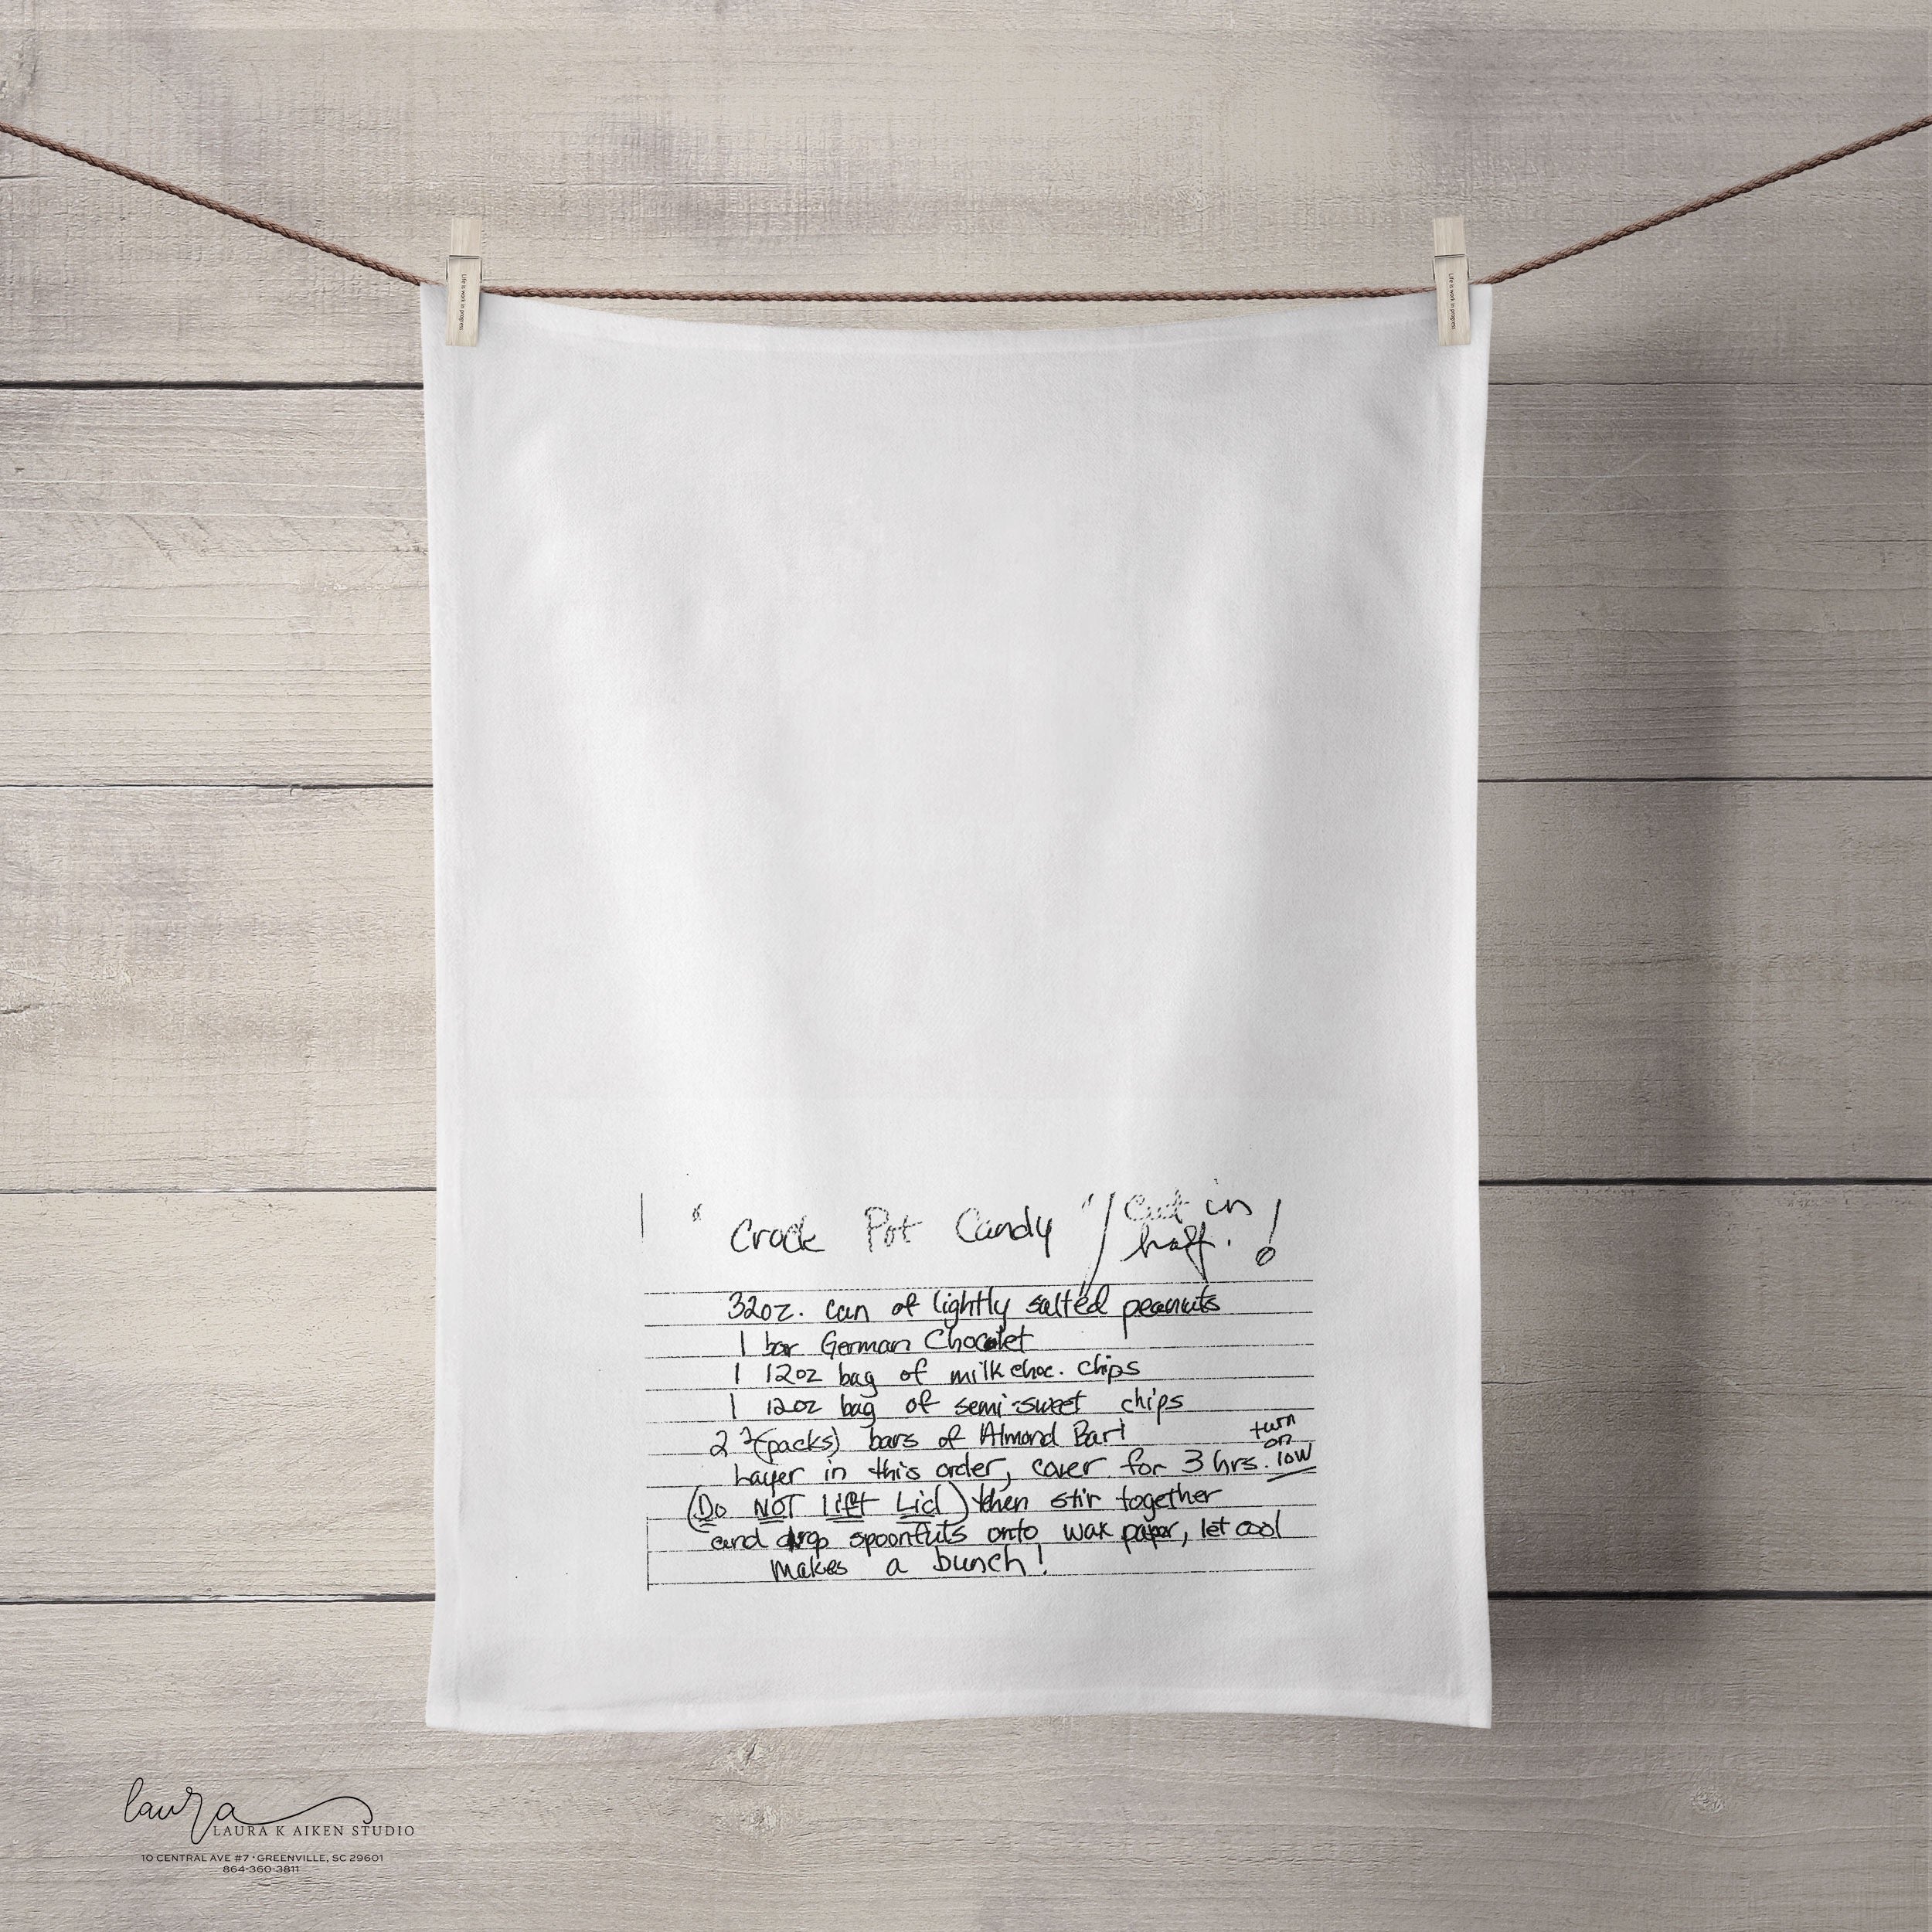 Life is work in progress
Life is work in progress
"Crock Pot Candy" / Cut in half. !
32oz. can of lightly salted peanuts
1 bar German Chocolet
1 12oz bag of milk choc. chips
1 12oz bag of semi-sweet chips
2 (packs) bars of Almond Bark
Layer in this order, cover for 3 hrs. turn on low
(Do NOT lift Lid) then stir together
and drop spoonfuls onto wax paper, let cool
makes a bunch!
laura
LAURA K AIKEN STUDIO
10 CENTRAL AVE #7 • GREENVILLE, SC 29601
864-360-3811